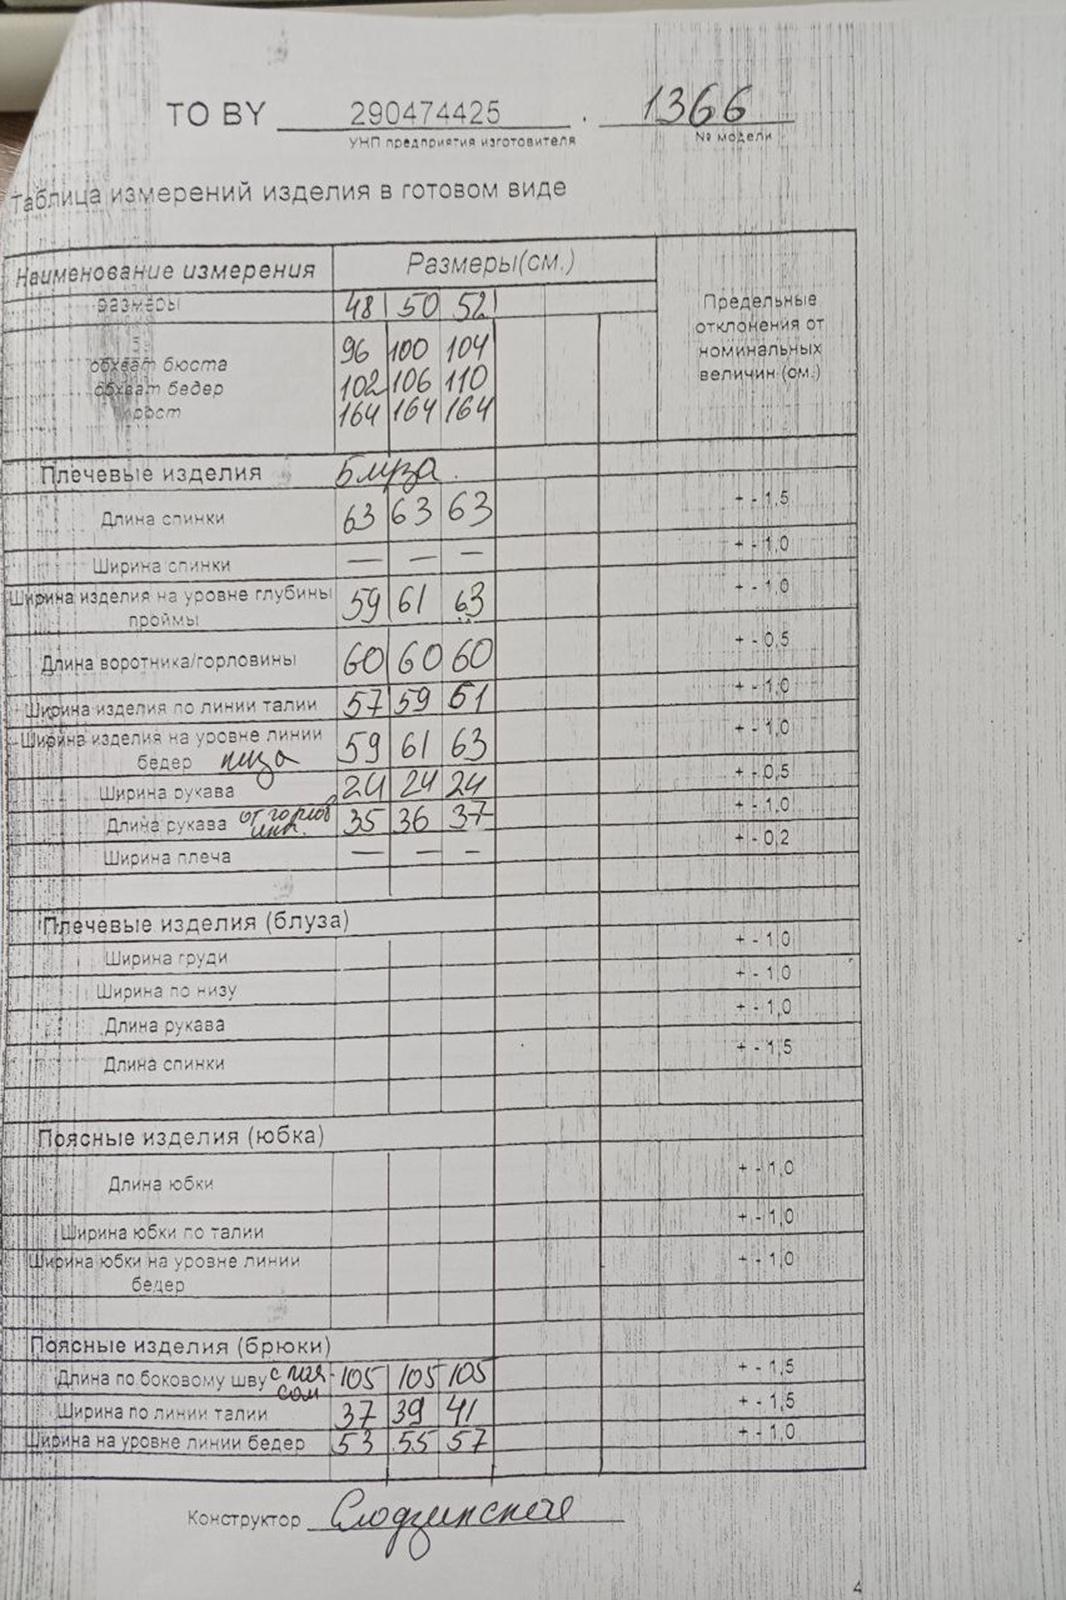 ТО BY 290474425 . 1366
УНП предприятия изготовителя № модели
Таблица измерений изделия в готовом виде
Наименование измерения Размеры(см.) Предельные отклонения от номинальных величин (см.)
размеры 48 50 52
обхват бюста 96 100 104
обхват бедер 102 106 110
рост 164 164 164
Плечевые изделия Блуза.
Длина спинки 63 63 63 + - 1,5
Ширина спинки — — — + - 1,0
Ширина изделия на уровне глубины проймы 59 61 63 + - 1,0
Длина воротника/горловины 60 60 60 + - 0,5
Ширина изделия по линии талии 57 59 61 + - 1,0
Ширина изделия на уровне линии бедер низа 59 61 63 + - 1,0
Ширина рукава 24 24 24 + - 0,5
Длина рукава от горлов 35 36 37 + - 1,0
Ширина плеча — — — + - 0,2
Плечевые изделия (блуза)
Ширина груди + - 1,0
Ширина по низу + - 1,0
Длина рукава + - 1,0
Длина спинки + - 1,5
Поясные изделия (юбка)
Длина юбки + - 1,0
Ширина юбки по талии + - 1,0
Ширина юбки на уровне линии бедер + - 1,0
Поясные изделия (брюки)
Длина по боковому шву с поя-сом 105 105 105 + - 1,5
Ширина по линии талии 37 39 41 + - 1,5
Ширина на уровне линии бедер 53 55 57 + - 1,0
Конструктор Слодзинская
4